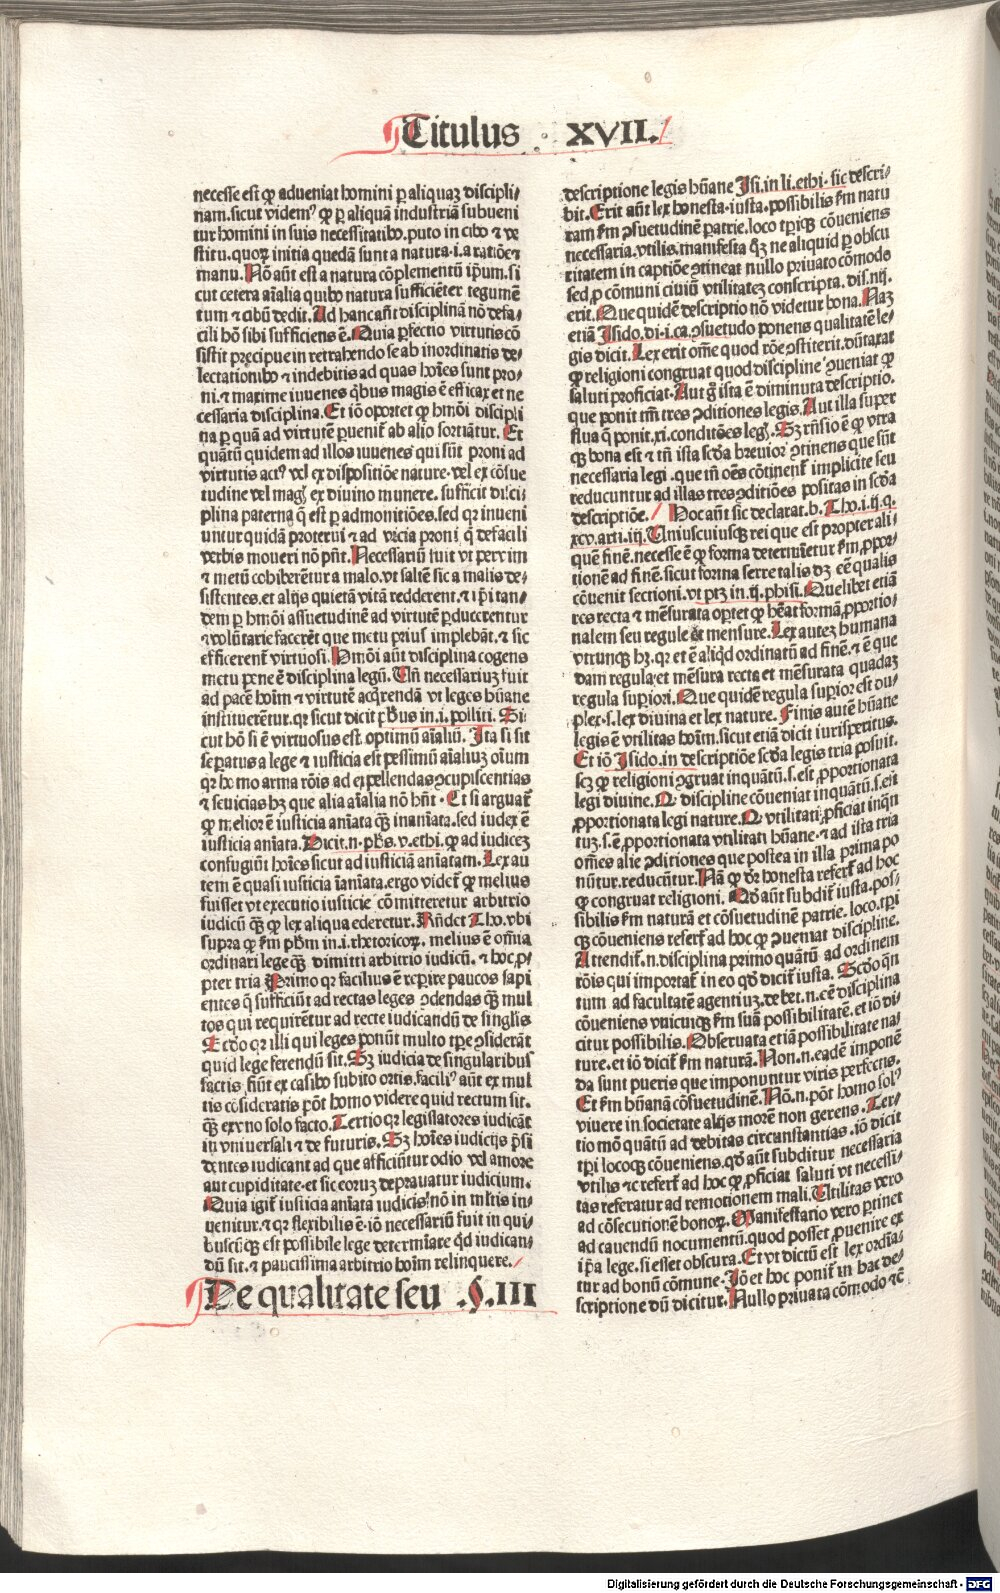 Titulus XVII.
necesse est ꝙ adueniat homini ꝑ aliquaꝫ discipli⸗
nam. sicut videmꝰ ꝙ ꝑ aliquã industriã subueni
tur homini in suis necessitatibꝰ. puto in cibo ⁊ ve
stitu. quoꝝ initia quedã sunt a natura. i. a ratiõe ⁊
manu. Nõ aũt est a natura cõplementũ ip̃um. si
cut cetera aĩalia quibꝰ natura sufficiẽter tegumẽ
tum ⁊ cibũ dedit. Ad hanc aũt disciplinã nõ defa⸗
cili hõ sibi sufficiens ẽ. Quia ꝑfectio virtutis cõ
sistit p̃cipue in retrahendo se ab inordinatis de⸗
lectationibꝰ ⁊ indebitis ad quas hoĩes sunt pro⸗
ni. ⁊ maxime iuuenes q̃bus magis ẽ efficax et ne
cessaria disciplina. Et iõ oportet ꝙ hmõi discipli
na ꝑ quã ad virtutẽ ꝑueniť ab alio sortiãtur. Et
quãtũ quidem ad illos iuuenes qui sũt proni ad
virtutis actꝰ vel ex dispositiõe nature. vel ex cõsue
tudine vel magꝭ ex diuino munere. sufficit disci⸗
plina paterna q̃ est ꝑ admonitiões. sed qꝛ inueni
untur quidã proterui ⁊ ad vicia proni q̃ defacili
verbis moueri nõ pñt. Necessariũ fuit vt per vim
⁊ metũ cohiberẽtur a malo. vt saltẽ sic a malis de⸗
sistentes. et alijs quietã vitã redderent. ⁊ ip̃i tan⸗
dem ꝑ hmõi assuetudinẽ ad virtutẽ ꝑducerentur
⁊ volũtarie facerẽt que metu priusꝰ implebãt. ⁊ sic
efficerenť virtuosi. Hmõi aũt disciplina cogens
metu pene ẽ disciplina legũ. Uñ necessariuꝫ fuit
ad pacẽ hoĩm ⁊ virtutẽ acq̃rendã vt leges hũane
instituerẽtur. qꝛ sicut dicit pħus in. i. politi. Si
cut hõ si ẽ virtuosus est optimũ aĩaliũ. Ita si sit
sepatus a lege ⁊ iusticia est pessimũ aĩaliuꝫ oĩum
qꝛ homo arma rõis ad expellendas ꝯcupiscentias
⁊ seuicias hꝫ que alia aĩalia nõ hñt. Et si arguať
ꝙ melior ẽ iusticia aĩata q̃ꝫ inaĩata. sed iudex ẽ
iusticia aĩata. Dicit. n. pħs. v. ethi. ꝙ ad iudiceꝫ
confugiũt hoĩes sicut ad iusticiã aĩatam. Lex au
tem ẽ quasi iusticia iaĩata. ergo videť ꝙ melius
fuisset vt executio iusticie cõmitteretur arbitrio
iudicũ q̃ꝫ ꝙ lex aliqua ederetur. Rñdet Tho. vbi
supra ꝙ ẜm pħm in. i. rhetoricoꝝ. melius ẽ oĩa
ordinari lege q̃ꝫ dimitti arbitrio iudicũ. ⁊ hoc ꝓ⸗
pter tria Primo qꝛ facilius ẽ reꝑire paucos sapi
entes q̃ sufficiũt ad rectas leges ꝯdendas q̃ꝫ mul
tos qui requirẽtur ad recte iudicandũ de singl̃is
Scḋo qꝛ illi qui leges ponũt multo tp̃e ꝯsiderãt
quid lege ferendũ sit. Sꝫ iudicia de singularibus
factis fiũt ex casibꝰ subito ortis. faciliꝰ aũt ex mul
tis cõsideratis põt homo videre quid rectum sit.
q̃ꝫ ex vno solo facto. Tertio qꝛ legislatores iudicãt
in vniuersali ⁊ de futuris. Sꝫ hoĩes iudicijs p̃si
dentes iudicant ad que afficiũtur odio vel amore
aut cupiditate. et sic eoruꝫ deprauatur iudicium.
Quia igiť iusticia aĩata iudicis nõ in ml̃tis in⸗
uenitur. ⁊ qꝛ flexibilis ẽ. iõ necessariũ fuit in qui⸗
buscũqꝫ est possibile lege determĩare qḋ iudican⸗
dũ sit. ⁊ paucissima arbitrio hoĩm relinquere.
De qualitate seu .§. III
descriptione legis hũane Isi. in li. ethi. sic descri⸗
bit. Erit aũt lex honesta. iusta. possibilis ẜm natu
ram ẜm ꝯsuetudinẽ patrie. loco tp̃iqꝫ cõueniens
necessaria. vtilis. manifesta q̃ꝫ ne aliquid ꝑ obscu
ritatem in captiõe ꝯtineat nullo priuato cõmodo
sed ꝓ cõmuni ciuiũ vtilitateꝫ conscripta. dis. iiij.
erit. Que quidẽ descriptio nõ videtur bona. Naꝫ
etiã Isido. di. i. ca. ꝯsuetudo ponens qualitatẽ le⸗
gis dicit. Lex erit om̃e quod rõe ꝯstiterit. dũtaxat
ꝙ religioni congruat quod discipline ꝯueniat ꝙ
saluti proficiat. Aut g̊ ista ẽ diminuta descriptio.
que ponit tm̃ tres ꝯditiones legis. Aut illa super
flua q̃ ponit. xi. conditões legꝭ. Sꝫ rñsio ẽ ꝙ vtra
qꝫ bona est ⁊ tñ ista scḋa breuior ꝯtinens que sũt
necessaria legi. que tñ oẽs cõtinenť implicite seu
reducuntur ad illas tres ꝯditiões positas in scḋa
descriptiõe. Hoc aũt sic declarat. b. Tho. i. ij. q.
xcv. arti. iij. Uniuscuiusqꝫ rei que est propter ali⸗
quẽ finẽ. necesse ẽ ꝙ forma determĩetur ẜm ꝓpor⸗
tionẽ ad finẽ. sicut forma serre talis dꝫ eẽ qualis
cõuenit sectioni. vt ptꝫ in. ij. phisi. Quelibet etiã
res recta ⁊ mẽsurata oꝑtet ꝙ hẽat formã ꝓportio⸗
nalem seu regule ⁊ mensure. Lex auteꝫ humana
vtrunqꝫ hꝫ. qꝛ et ẽ aliqḋ ordinatũ ad finẽ. ⁊ ẽ que
dam regula. et mẽsura recta et mẽsurata quadaꝫ
regula suꝑiori. Que quidẽ regula suꝑior est du⸗
plex. s. lex diuina et lex nature. Finis autẽ hũane
legis ẽ vtilitas hoĩm. sicut etiã dicit iurisperitus.
Et iõ Isido. in descriptiõe scḋa legis tria posuit.
scꝫ ꝙ religioni ꝯgruat inquãtũ. s. est ꝓportionata
legi diuine. Q discipline cõueniat inquãtũ. s. est
ꝓportionata legi nature. Q vtilitati ꝓficiat inqũ
tuꝫ. s. ẽ ꝓportionata vtilitati hũane. ⁊ ad ista tria
om̃es alie ꝯditiones que postea in illa prima po
nũtur. reducũtur. Nã ꝙ dr̃ honesta referť ad hoc
ꝙ congruat religioni. Qḋ aũt subdiť iusta. pos⸗
sibilis ẜm naturã et cõsuetudinẽ patrie. loco. tp̃i
qꝫ cõueniens referť ad hoc ꝙ ꝯueniat discipline.
Attendiť. n. disciplina primo quãtũ ad ordinem
rõis qui importať in eo qḋ diciť iusta. Scḋo qñ
tum ad facultatẽ agentiuꝫ. debet. n. eẽ disciplina
cõueniens vnicuiqꝫ ẜm suã possibilitatẽ. et iõ di⸗
citur possibilis. Obseruata etiã possibilitate na⸗
ture. et iõ diciť ẜm naturã. Non. n. eadẽ imponẽ
da sunt pueris que imponuntur viris perfectis.
Et ẜm hũanã cõsuetudinẽ. Nõ. n. põt homo solꝰ
viuere in societate alijs morẽ non gerens. Ter⸗
tio mõ quãtũ ad debitas circunstantias. iõ dicit
tp̃ri locoqꝫ cõueniens. qḋ aũt subditur necessaria
vtilis ⁊c referť ad hoc ꝙ ꝓficiat saluti vt necessi⸗
tas referatur ad remotionem mali. Utilitas vero
ad cõsecutionẽ bonoꝝ. Manifestatio vero ꝑtinet
ad cauendũ nocumentũ. quod posset ꝓuenire ex
ip̃a lege. si esset obscura. Et vt dictũ est lex ordĩa⸗
tur ad bonũ cõmune. Iõ et hoc poniť in hac de⸗
scriptione dũ dicitur. Nullo priuata cõmodo ⁊cẽ
Digitalisierung gefördert durch die Deutsche Forschungsgemeinschaft - DFG